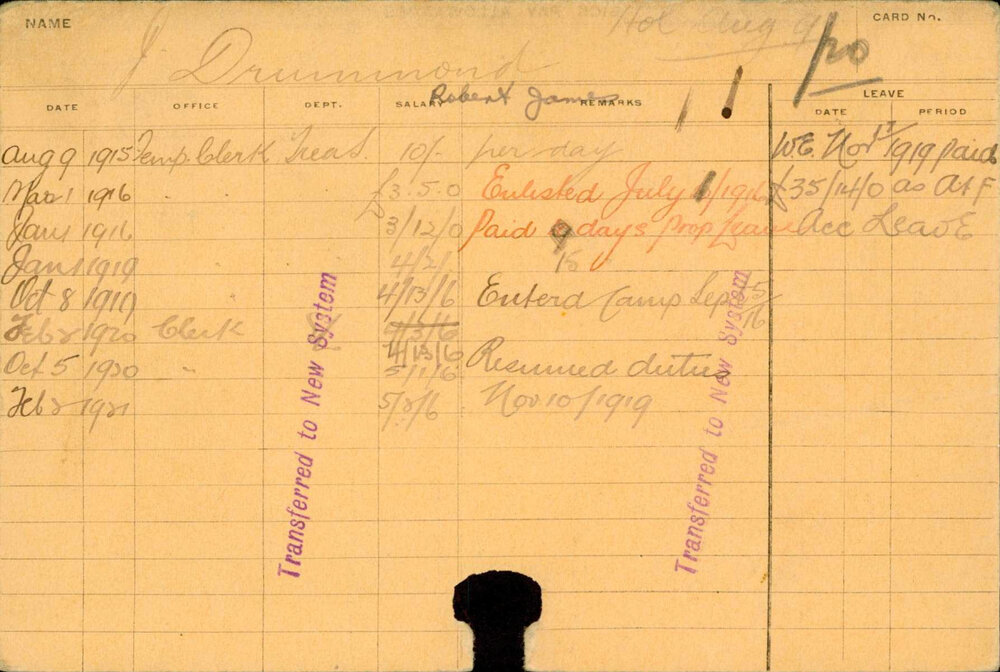 NAME Hol Aug 9 1/20 CARD No.
J Drummond
Robert James
DATE OFFICE DEPT. SALARY REMARKS LEAVE
DATE PERIOD
Aug 9 1915 Temp. Clerk Treas. 10/- per day W.E. Nov 1919 paid
Mar 1 1916 " £3.5.0 Enlisted July £35/14/0 as A.I.F
Jan 1 1916 3/12/0 Paid 9 days Prop Leave Acc Leave
Jan 1 1919 4/2/ 15
Oct 8 1919 4/13/6 Enterd Camp Sep
Feb 2 1920 Clerk 4/13/6
Oct 5 1920 " 5/1/6 Resumed duties
Feb 2 1921 5/2/6 Nov 10/1919
Transferred to New System
Transferred to New System